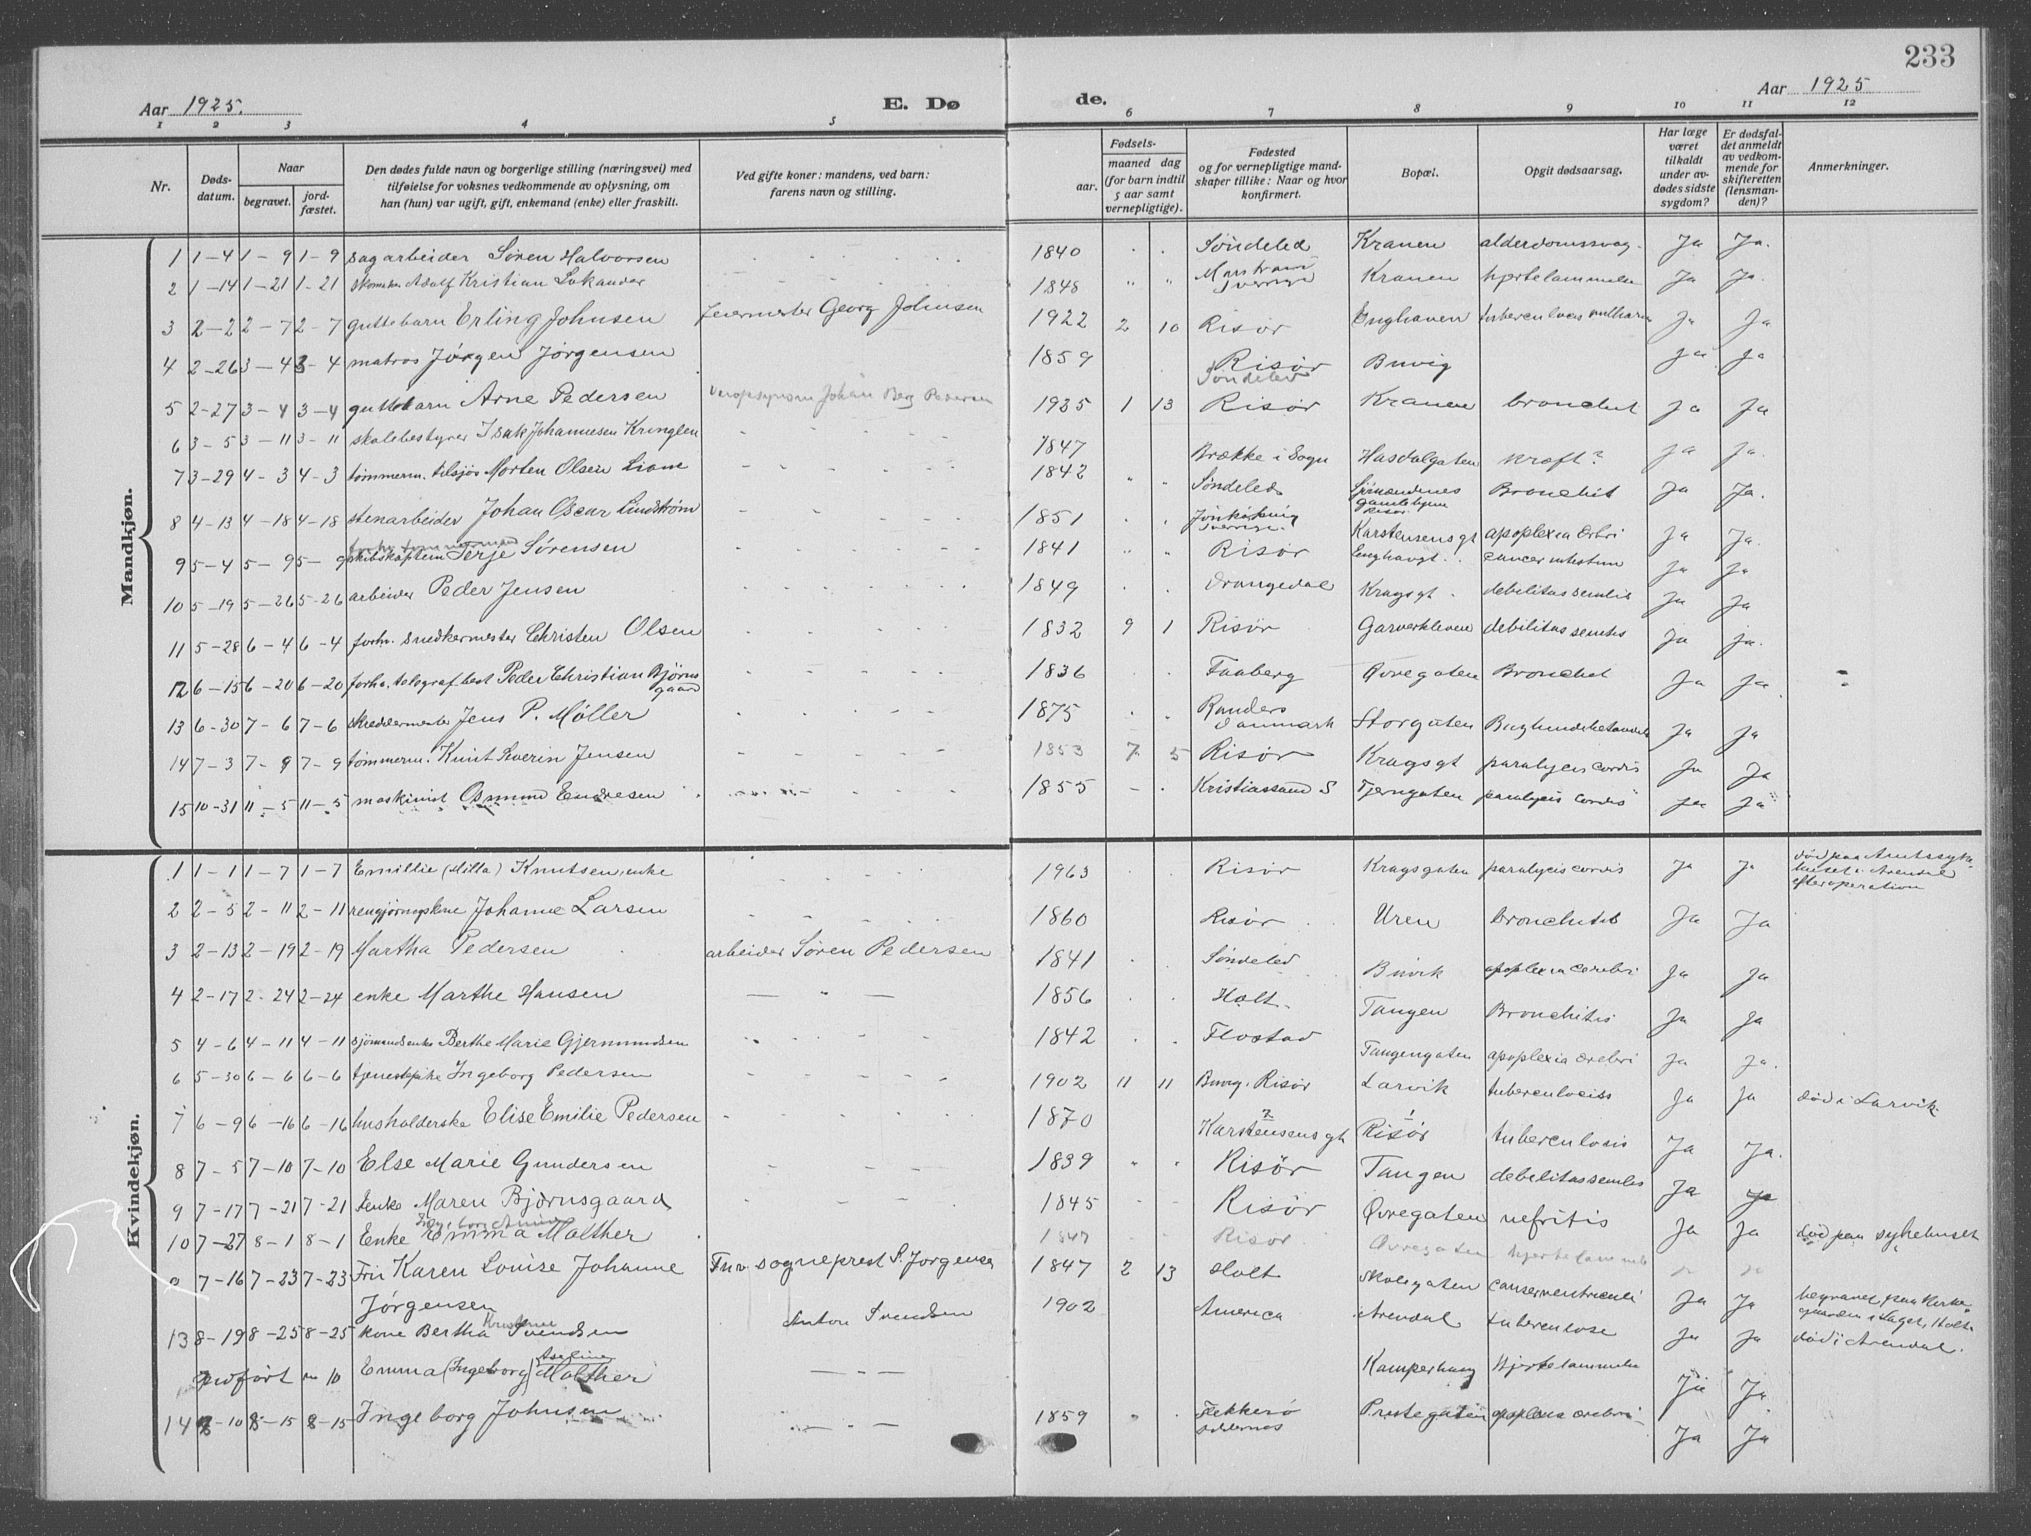 233
Aar 1925.
E. Dø
de.
Aar 1925
1 2 3 4 5
6 7 8 9 10 11 12
Nr.
Døds-
datum.
Naar
begravet.
jord-
fæstet.
Den dødes fulde navn og borgerlige stilling (næringsvei) med
tilføielse for voksnes vedkommende av oplysning, om
han (hun) var ugift, gift, enkemand (enke) eller fraskilt.
Ved gifte koner: mandens, ved barn:
farens navn og stilling.
Fødsels-
aar.
maaned dag
(for barn indtil
5 aar samt
vernepligtige).
Fødested
og for vernepligtige mand-
skaper tillike: Naar og hvor
konfirmert.
Bopæl.
Opgit dødsaarsag.
Har læge
været
tilkaldt
under av-
dødes sidste
sygdom?
Er dødsfal-
det anmeldt
av vedkom-
mende for
skifteretten
(lensman-
den)?
Anmerkninger.
Mandkjøn.
1 1-4 1-9 1-9 sagarbeider Søren Halvorsen 1840 Søndeled Kranen alderdomssvag. Ja Ja.
2 1-14 1-21 1-21 Adolf Kristian 1848 Sverrige Kranen hjertelammelse Ja Ja.
3 2-2 2-7 2-7 guttebarn Erling Johnsen feiermester Georg Johnsen 1922 2 10 Risør Enghaven Ja Ja
4 2-26 3-4 3-4 matros Jørgen Jørgensen 1859 Risør Søndeled Buvig Ja Ja
5 2-27 3-4 3-4 guttebarn Arne Pedersen Johan Berg Pedersen 1925 1 13 Risør Kranen bronchit Ja Ja
6 3-5 3-11 3-11 skolebestyrer Isak Johannesen Kringlen 1847 Brække i Sogn Hasdalgaten kræft? Ja Ja.
7 3-29 4-3 4-3 tømmerm. tilsjøs Morten Olsen Liane 1842 Søndeled Sjømændenes gamlehjem Risør Bronchit Ja Ja.
8 4-13 4-18 4-18 stenarbeider Johan Oscar Lindstrøm 1851 Jönköping Sverrige. Karstensensgt apoplexia Ja Ja.
9 5-4 5-9 5-9 skibskaptein Terje Sørensen 1841 Risør Enghavgt. cancer Ja Ja
10 5-19 5-26 5-26 arbeider Peder Jensen 1849 Drangedal Kragsgt. debilitas senilis Ja Ja
11 5-28 6-4 6-4 forhv. snedkermester Christen Olsen 1832 9 1 Risør Garverkleven debilitas senilis Ja Ja.
12 6-15 6-20 6-20 forhv. telegrafbest Peder Christian Bjørns
gaard 1836 Faaberg Øvregaten Bronchit Ja Ja.
13 6-30 7-6 7-6 skreddermester Jens P. Møller 1875 Randers Danmark Storgaten Ja Ja
14 7-3 7-9 7-9 tømmerm. Knut Severin Jensen 1853 7 5 Risør Kragsgt paralysis cordis Ja Ja
15 10-31 11-5 11-5 maskinist Osmund Endresen 1855 Kristianssand S Tjerngaten paralysis cordis Ja Ja
Kvindekjøn.
1 1-1 1-7 1-7 Emillie (Milla) Knutsen, enke 1963 Risør Kragsgaten paralycis cordis Ja Ja død paa Amtssyke-
huset i Arendal
efter operation
2 2-5 2-11 2-11 Johanne Larsen 1860 Risør Uren bronchitis Ja Ja
3 2-13 2-19 2-19 Martha Pedersen arbeider Søren Pedersen 1841 Søndeled Buvik apoplexia cerebri Ja Ja
4 2-17 2-24 2-24 enke Marthe Hansen 1856 Holt Tangen Bronchitis Ja Ja
5 4-6 4-11 4-11 sjømandsenke Berthe Marie Gjermundsen 1842 Flostad Tangengaten apoplexia cerebri Ja Ja.
6 5-30 6-6 6-6 tjenestepike Ingeborg Pedersen 1902 11 11 Buvig, Risør Larvik tuberculosis Ja Ja død i Larvik.
7 6-9 6-16 6-16 husholderske Elise Emilie Pedersen 1870 Karstensensgt Risør tuberculosis Ja Ja.
8 7-5 7-10 7-10 Else Marie Gundersen 1839 Risør Tangen debilitas senilis Ja Ja
9 7-17 7-21 7-21 Enke Maren Bjørnsgaard 1845 Risør Øvregaten nefritis Ja Ja død paa sykehuset
10 7-27 8-1 8-1 Enke Emma Malther 1847 Risør Øvregaten hjertelammelse
7-16 7-23 7-23 Fru Karen Louise Johanne
Jørgensen Fhv. sogneprest S. Jørgensen 1847 2 13 Holt Skolegaten cancer ventriculi Ja Ja begravet paa Kirke-
gaarden i Laget, Holt.
13 8-19 8-25 8-25 kone Bertha Kristine Svendsen Anton Svendsen 1902 America Arendal tuberculose Ja Ja død i Arendal.
Indført nr 10 Emma (Ingeborg) Malther Kamperhaug Hjertelammelse Ja Ja.
14 8-10 8-15 8-15 Ingeborg Johnsen 1859 Flekkerø Prestegaten apoplexia cerebri Ja Ja